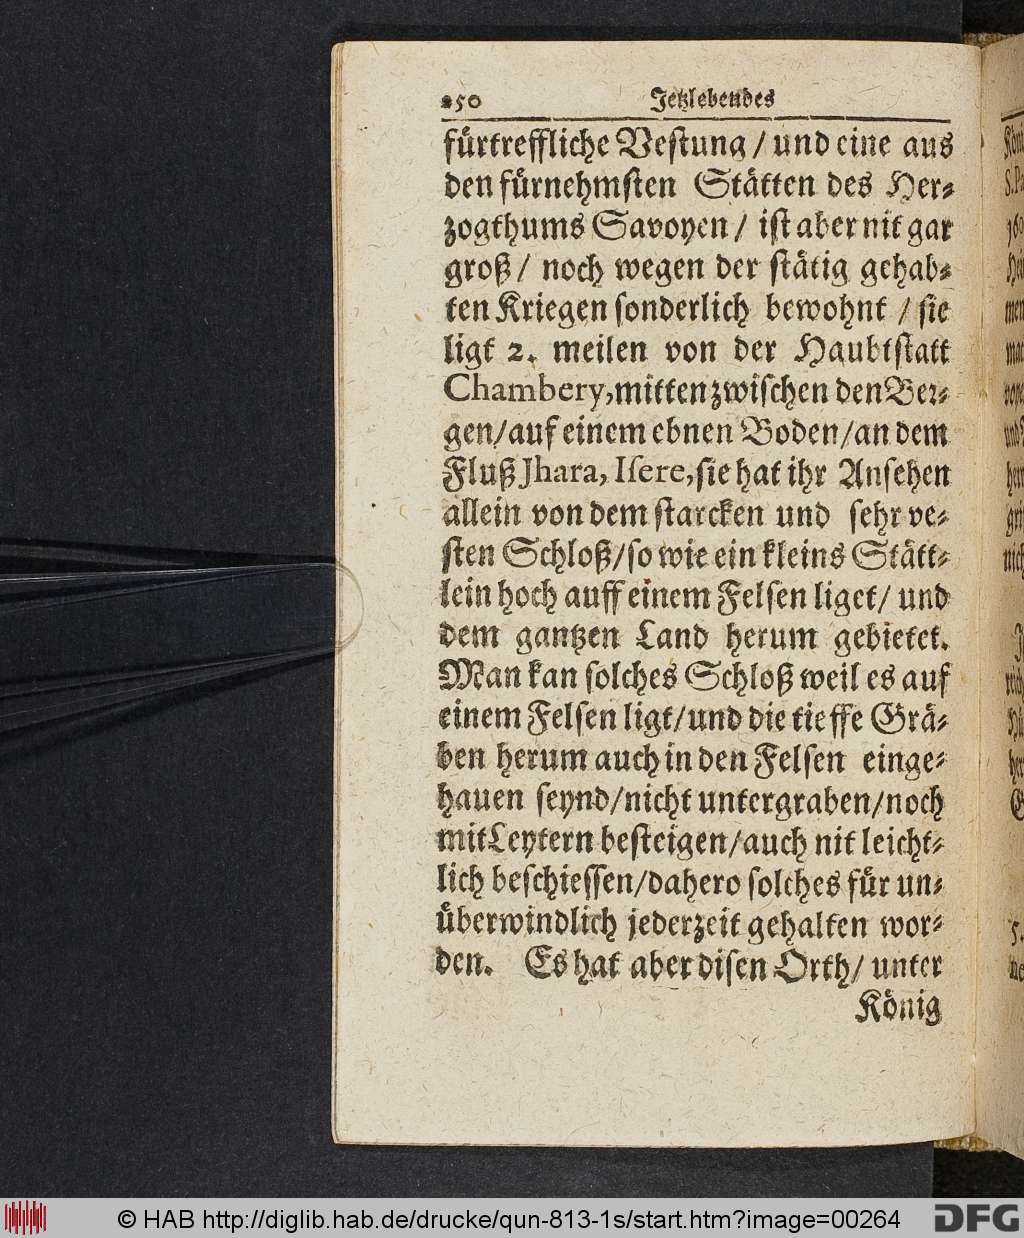 250 Jetzlebendes
fürtreffliche Vestung / und eine aus
den fürnehmsten Stätten des Her⸗
zogthums Savoyen / ist aber nit gar
groß / noch wegen der stätig gehab⸗
ten Kriegen sonderlich bewohnt / sie
ligt 2. meilen von der Haubtstatt
Chambery, mitten zwischen den Ber⸗
gen / auf einem ebnen Boden / an dem
Fluß Jhara, Isere, sie hat ihr Ansehen
allein von dem starcken und sehr ve⸗
sten Schloß / so wie ein kleins Stätt⸗
lein hoch auff einem Felsen liget / und
dem gantzen Land herum gebietet.
Man kan solches Schloß weil es auf
einem Felsen ligt / und die tieffe Grä⸗
ben herum auch in den Felsen einge⸗
hauen seynd / nicht untergraben / noch
mit Leytern besteigen / auch nit leicht⸗
lich beschiessen / dahero solches für un⸗
überwindlich jederzeit gehalten wor⸗
den. Es hat aber disen Orth / unter
König
© HAB http://diglib.hab.de/drucke/qun-813-1s/start.htm?image=00264
DFG